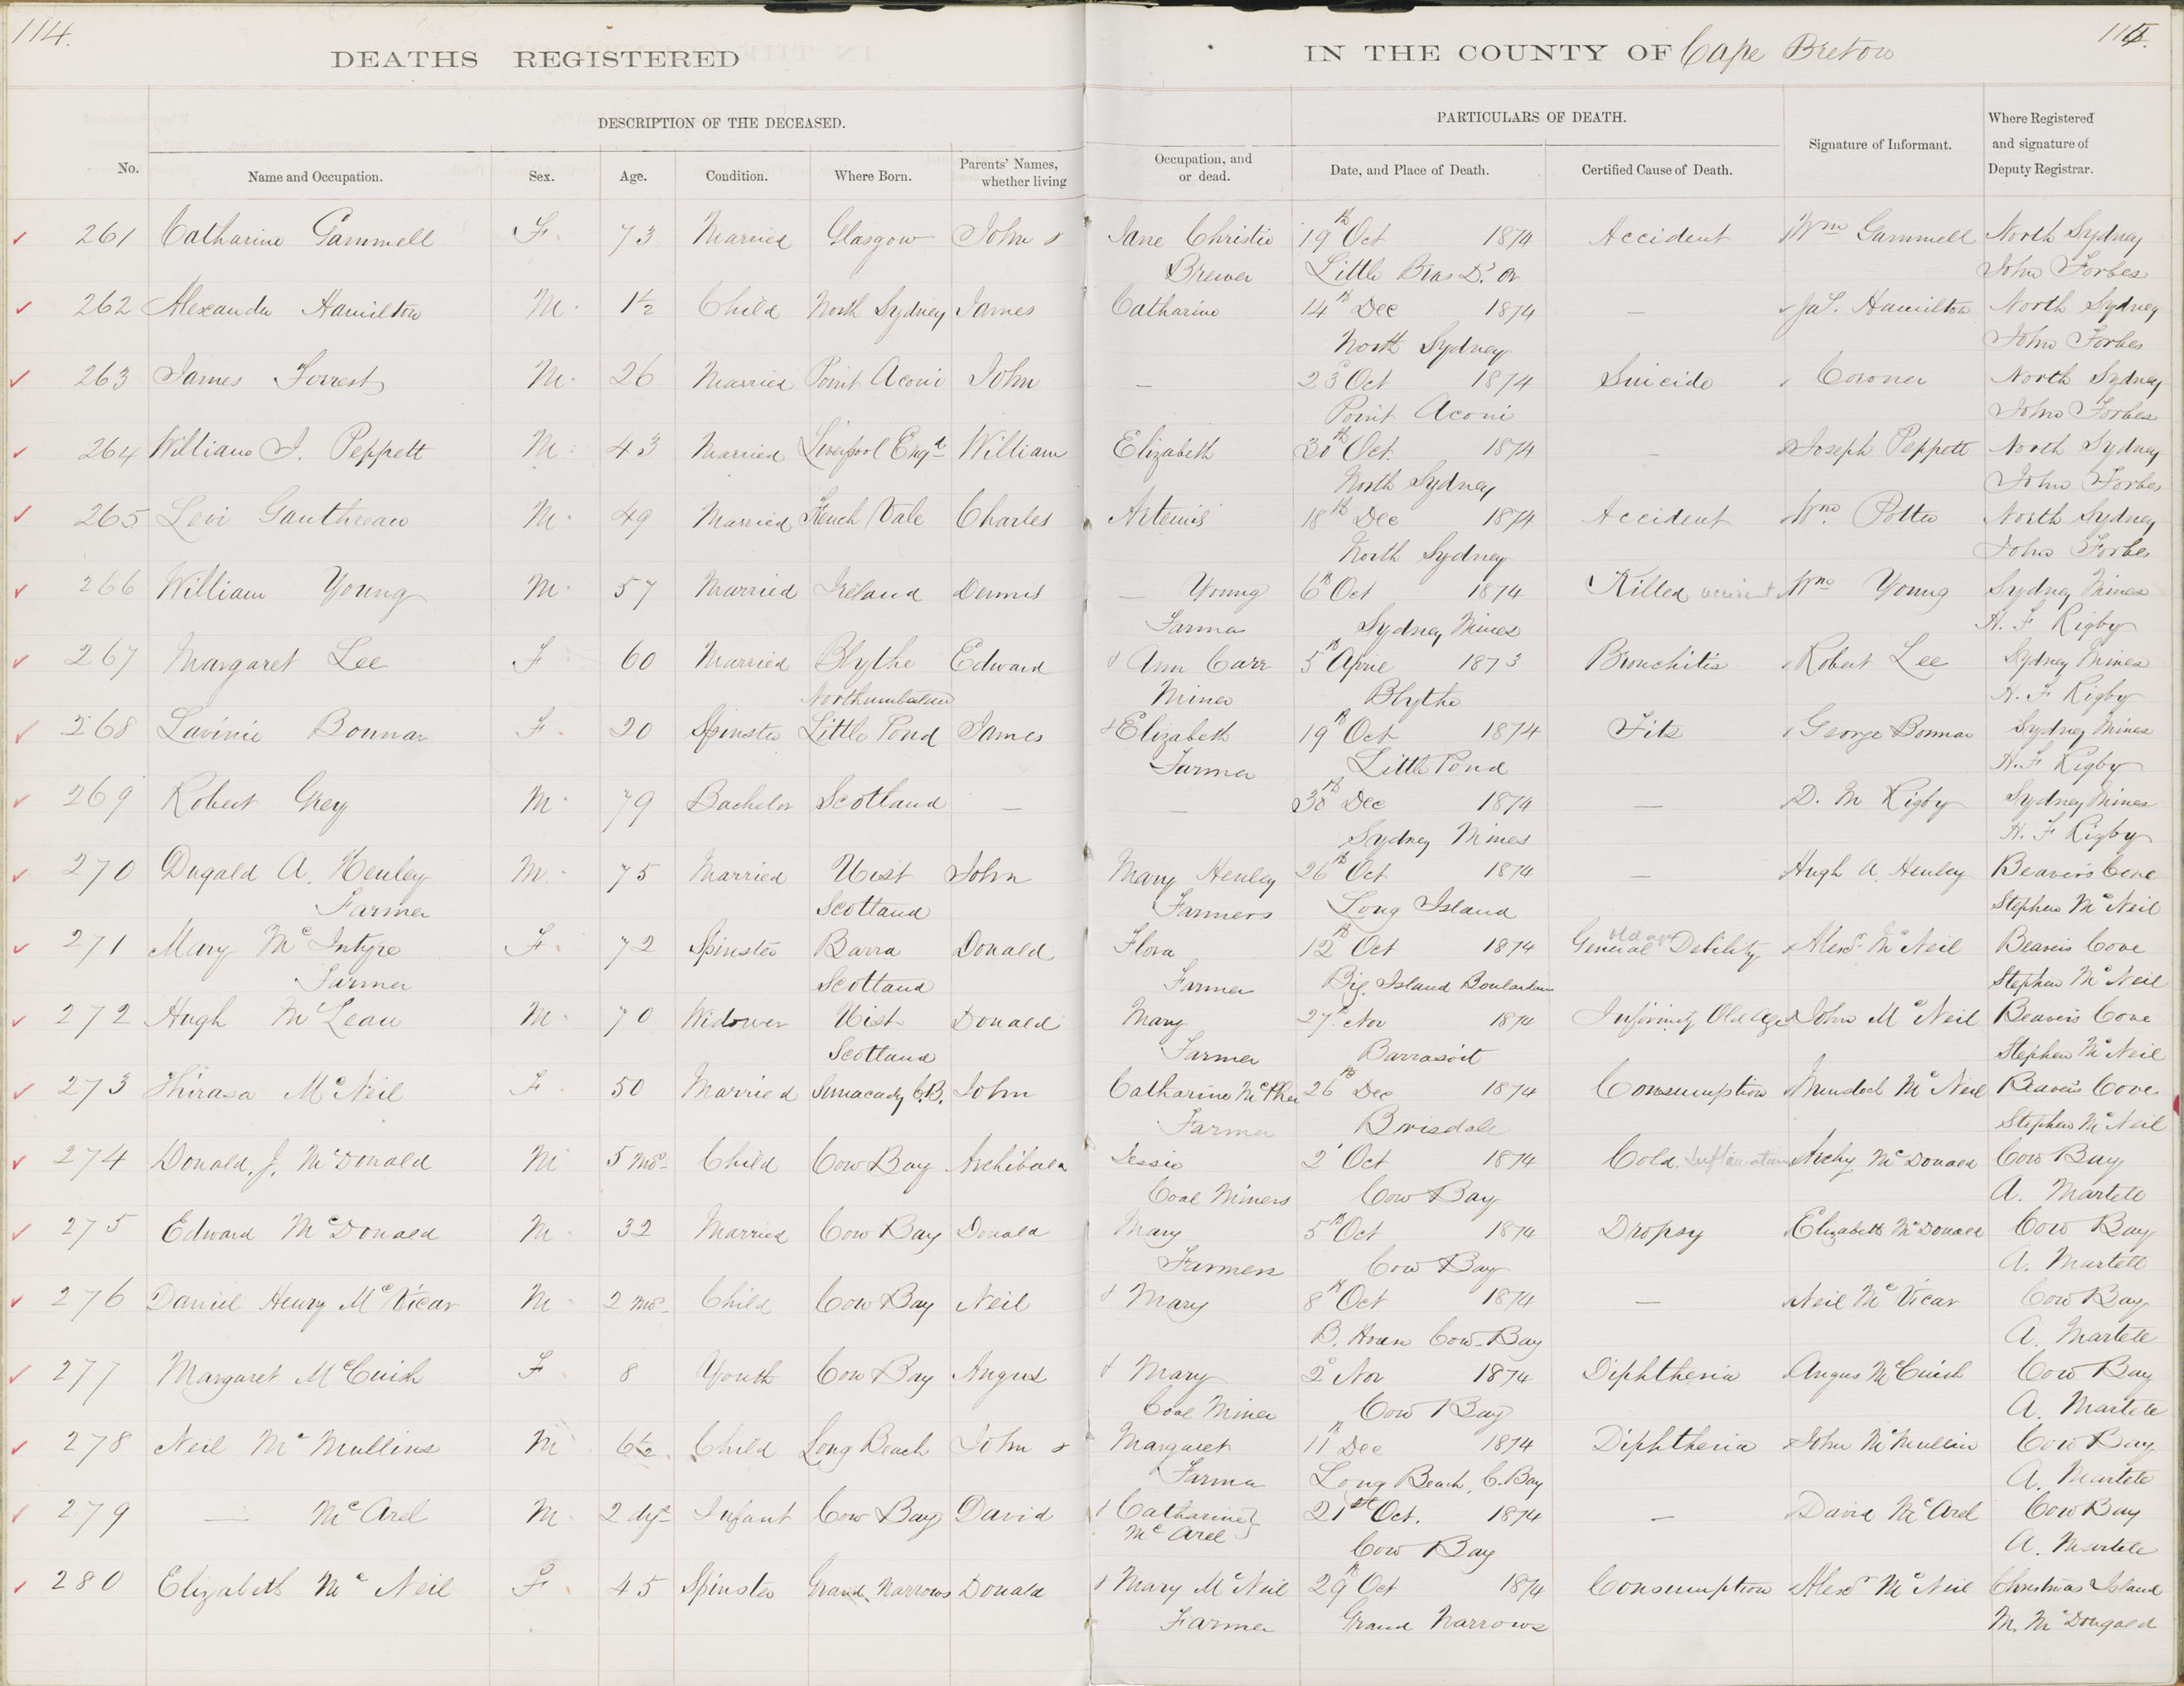 114.
115.
DEATHS REGISTERED IN THE COUNTY OF Cape Breton
DESCRIPTION OF THE DECEASED.
PARTICULARS OF DEATH.
No.
Name and Occupation.
Sex.
Age.
Condition.
Where Born.
Parents' Names, whether living
Occupation, and or dead.
Date, and Place of Death.
Certified Cause of Death.
Signature of Informant.
Where Registered and signature of Deputy Registrar.
261 Catharine Gammell F. 73 Married Glasgow John & Jane Christie 19th Oct 1874 Accident Wm Gammell North Sydney
Brewer Little Bras D'or John Forbes
262 Alexander Hamilton M. 1½ Child North Sydney James Catharine 14th Dec 1874 — Jas. Hamilton North Sydney
North Sydney John Forbes
263 James Forrest M. 26 Married Point Aconi John — 23d Oct 1874 Suicide Coroner North Sydney
Point Aconi John Forbes
264 William J. Peppett M. 43 Married Liverpool Engd William Elizabeth 30th Oct. 1874 — Joseph Peppett North Sydney
North Sydney John Forbes
265 Levi Gauthreau M. 49 Married French Vale Charles Artemis 18th Dec 1874 Accident Wm. Potter North Sydney
North Sydney John Forbes
266 William Young M. 57 Married Ireland Dennis — Young 6th Oct 1874 Killed accident Wm Young Sydney Mines
Farmer Sydney Mines H. F Rigby
267 Margaret Lee F 60 Married Blythe Edward & Ann Carr 5th April 1873 Bronchitis Robert Lee Sydney Mines
Northumberland Miner Blythe H. F Rigby
268 Lavinie Bonnar F. 20 Spinster Little Pond James & Elizabeth 19th Oct 1874 Fits George Bonnar Sydney Mines
Farmer Little Pond H. F Rigby
269 Robert Grey M. 79 Bachelor Scotland — — 30th Dec 1874 — D. M Rigby Sydney Mines
Sydney Mines H. F Rigby
270 Dugald A. Henley M. 75 Married Uist John Mary Henley 26th Oct 1874 — Hugh A. Henley Beaver's Cove
Farmer Scotland Farmers Long Island Stephen McNeil
271 Mary McIntyre F. 72 Spinster Barra Donald Flora 12th Oct 1874 General old age Debility Alexr. McNeil Beavers Cove
Farmer Scotland Farmer Big Island Boularderie Stephen McNeil
272 Hugh McLean M. 70 Widower Uist Donald Mary 27th Nov 1874 Infirmity Old Age John McNeil Beavers Cove
Scotland Farmer Barrasoit Stephen McNeil
273 Thirasa McNeil F. 50 Married C.B. John Catharine McPhee 26th Dec 1874 Consumption Murdoch McNeil Beavers Cove
Farmer Boisdale Stephen McNeil
274 Donald. J. McDonald M 5 mos. Child Cow Bay Archibald Jessie 2d Oct 1874 Cold, Inflamation Archy McDonald Cow Bay
Coal Miners Cow Bay A. Martell
275 Edward McDonald M. 32 Married Cow Bay Donald Mary 5th Oct 1874 Dropsy Elizabeth McDonald Cow Bay
Farmers Cow Bay A. Martell
276 Daniel Henry McVicar M. 2 mos. Child Cow Bay Neil & Mary 8th Oct 1874 — Neil McVicar Cow Bay
Cow-Bay A. Martell
277 Margaret McCuish F. 8 Youth Cow Bay Angus & Mary 2d Nov 1874 Diphtheria Angus McCuish Cow Bay
Coal Miner Cow Bay A. Martell
278 Neil McMullins M 6½ Child Long Beach John & Margaret 11th Dec 1874 Diphtheria John McMullin Cow Bay
Farmer Long Beach, C. Bay A. Martell
279 — McArel M. 2 dys Infant Cow Bay David & Catharine 21st Oct. 1874 — David McArel Cow Bay
McArel Cow Bay A. Martell
280 Elizabeth McNeil F. 45 Spinster Grand Narrows Donald & Mary McNeil 29th Oct 1874 Consumption Alexr McNeil Christmas Island
Farmer Grand Narrows M. McDougald